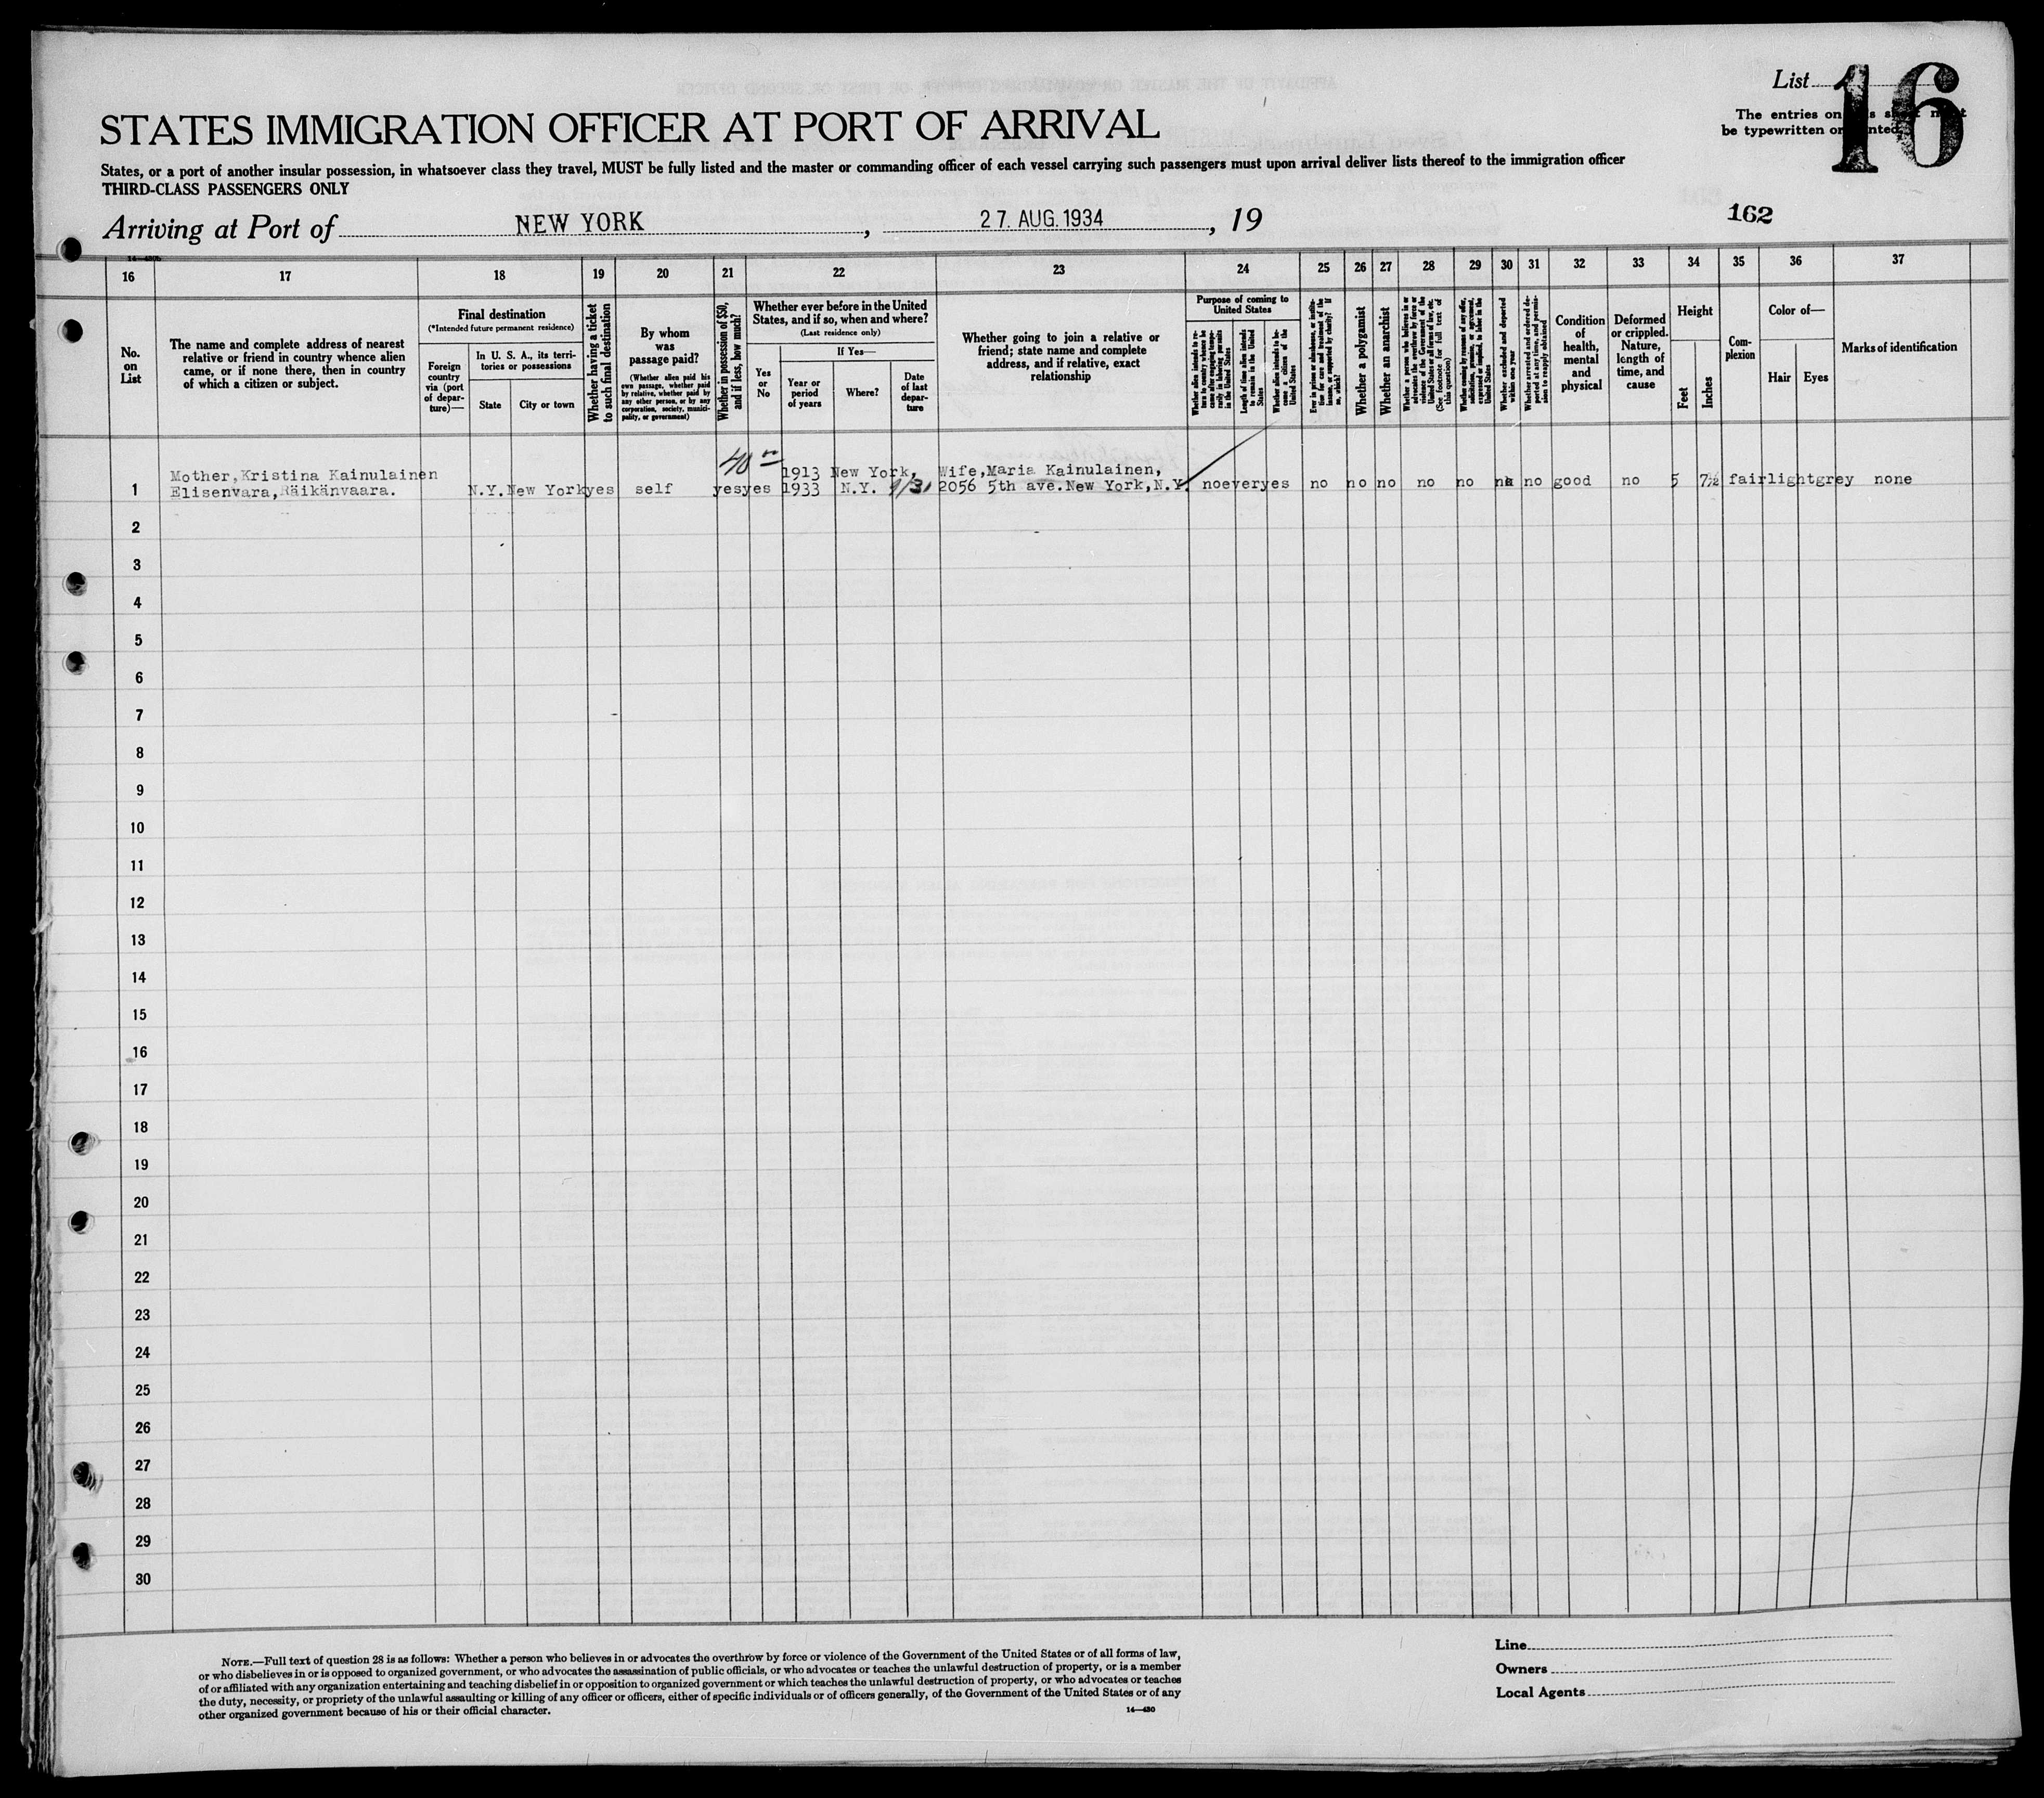 List
16
The entries on
be typewritten or
STATES IMMIGRATION OFFICER AT PORT OF ARRIVAL
States, or a port of another insular possession, in whatsoever class they travel, MUST be fully listed and the master or commanding officer of each vessel carrying such passengers must upon arrival deliver lists thereof to the immigration officer
THIRD-CLASS PASSENGERS ONLY
Arriving at Port of NEW YORK, 27. AUG. 1934, 19
162
16 17 18 19 20 21 22 23 24 25 26 27 28 29 30 31 32 33 34 35 36 37
No.
on
List
The name and complete address of nearest
relative or friend in country whence alien
came, or if none there, then in country
of which a citizen or subject.
Final destination
(*Intended future permanent residence)
Foreign
country
via (port
of depar-
ture)—
In U. S. A., its terri-
tories or possessions
State
City or town
Whether having a ticket
to such final destination
By whom
was
passage paid?
(Whether alien paid his
own passage, whether paid
by relative, whether paid by
any other person, or by any
corporation, society, munici-
pality, or government)
Whether in possession of $50,
and if less, how much?
Whether ever before in the United
States, and if so, when and where?
(Last residence only)
Yes
or
No
If Yes—
Year or
period
of years
Where?
Date
of last
depar-
ture
Whether going to join a relative or
friend; state name and complete
address, and if relative, exact
relationship
Purpose of coming to
United States
Whether alien intends to re-
turn to country whence he
came after engaging tempo-
rarily in laboring pursuits
in the United States
Length of time alien intends
to remain in the United
States
Whether alien intends to be-
come a citizen of the
United States
Ever in prison or almshouse, or institu-
tion for care and treatment of the
insane, or supported by charity? If
so, which?
Whether a polygamist
Whether an anarchist
Whether a person who believes in or
advocates the overthrow by force or
violence of the Government of the
United States or all forms of law, etc.
(See footnote for full text of
this question)
Whether coming by reason of any offer,
solicitation, promise, or agreement,
expressed or implied, to labor in the
United States
Whether excluded and deported
within one year
Whether arrested and ordered de-
ported at any time, and permis-
sion to reapply obtained
Condition
of
health,
mental
and
physical
Deformed
or crippled.
Nature,
length of
time, and
cause
Height
Feet
Inches
Com-
plexion
Color of—
Hair
Eyes
Marks of identification
40
Mother,Kristina Kainulainen 1913 New York, Wife,Maria Kainulainen,
1 Elisenvara,Räikänvaara. N.Y. New York yes self yes yes 1933 N.Y. 2056 5th ave.New York,N.Y. no ever yes no no no no no no no good no 5 7½ fair light grey none
2
3
4
5
6
7
8
9
10
11
12
13
14
15
16
17
18
19
20
21
22
23
24
25
26
27
28
29
30
NOTE.—Full text of question 28 is as follows: Whether a person who believes in or advocates the overthrow by force or violence of the Government of the United States or of all forms of law,
or who disbelieves in or is opposed to organized government, or who advocates the assassination of public officials, or who advocates or teaches the unlawful destruction of property, or is a member
of or affiliated with any organization entertaining and teaching disbelief in or opposition to organized government or which teaches the unlawful destruction of property, or who advocates or teaches
the duty, necessity, or propriety of the unlawful assaulting or killing of any officer or officers, either of specific individuals or of officers generally, of the Government of the United States or of any
other organized government because of his or their official character.
14—430
Line
Owners
Local Agents